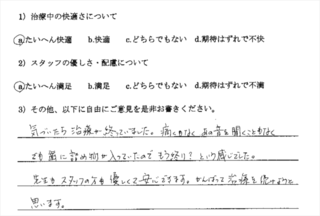 1）治療中の快適さについて
ⓐたいへん快適 b.快適 c.どちらでもない d.期待はずれで不快
2）スタッフの優しさ・配慮について
ⓐたいへん満足 b.満足 c.どちらでもない d.期待はずれで不満
3）その他、以下に自由にご意見を是非お書きください。
気づいたら治療が終っていました。痛くもなくあの音を聞くこともなく
歯に詰め物が入っていたのでもう終り？という感じでした。
先生もスタッフの方も優しくて安心できます。がんばって治療を続けようと
思います。